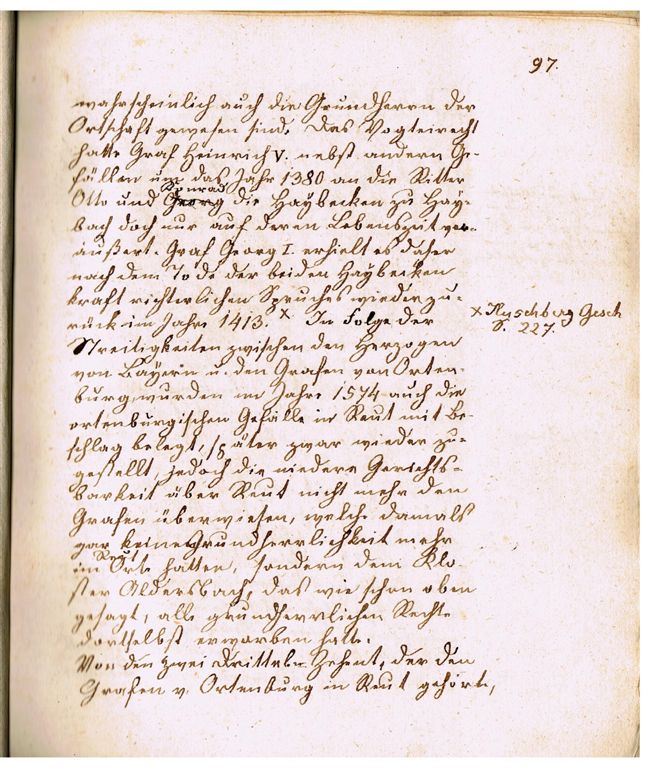 97.
wahrscheinlich auch die Grundherrn der
Ortschaft gewesen sind. Das Vogteirecht
hatte Graf Heinrich V. nebst andern Ge-
fällen um das Jahr 1380 an die Ritter
Konrad
Otto und Georg die Haybecken zu Hay-
bach doch nur auf deren Lebenszeit ver-
äußert. Graf Georg I. erhielt es daher
nach dem Tode der beiden Haybecken
kraft richterlichen Spruches wieder zu-
rück im Jahre 1413. x In Folge der
x Huschberg Gesch
S. 227.
Streitigkeiten zwischen den Herzogen
von Bayern u. den Grafen von Orten-
burg, wurden im Jahre 1574 auch die
ortenburgischen Gefälle in Reut mit Be-
schlag belegt, später zwar wieder zu-
gestellt, jedoch die niedere Gerichts-
barkeit über Reut nicht mehr den
Grafen überwiesen, welche damals
gar keine Grundherrlichkeit mehr
Reut
im Orte hatten, sondern dem Klo-
ster Aldersbach, das wie schon oben
gesagt, alle grundherrlichen Rechte
dortselbst erworben hatte.
Von den zwei Drittel Zehent, der den
Grafen v. Ortenburg in Reut gehörte,